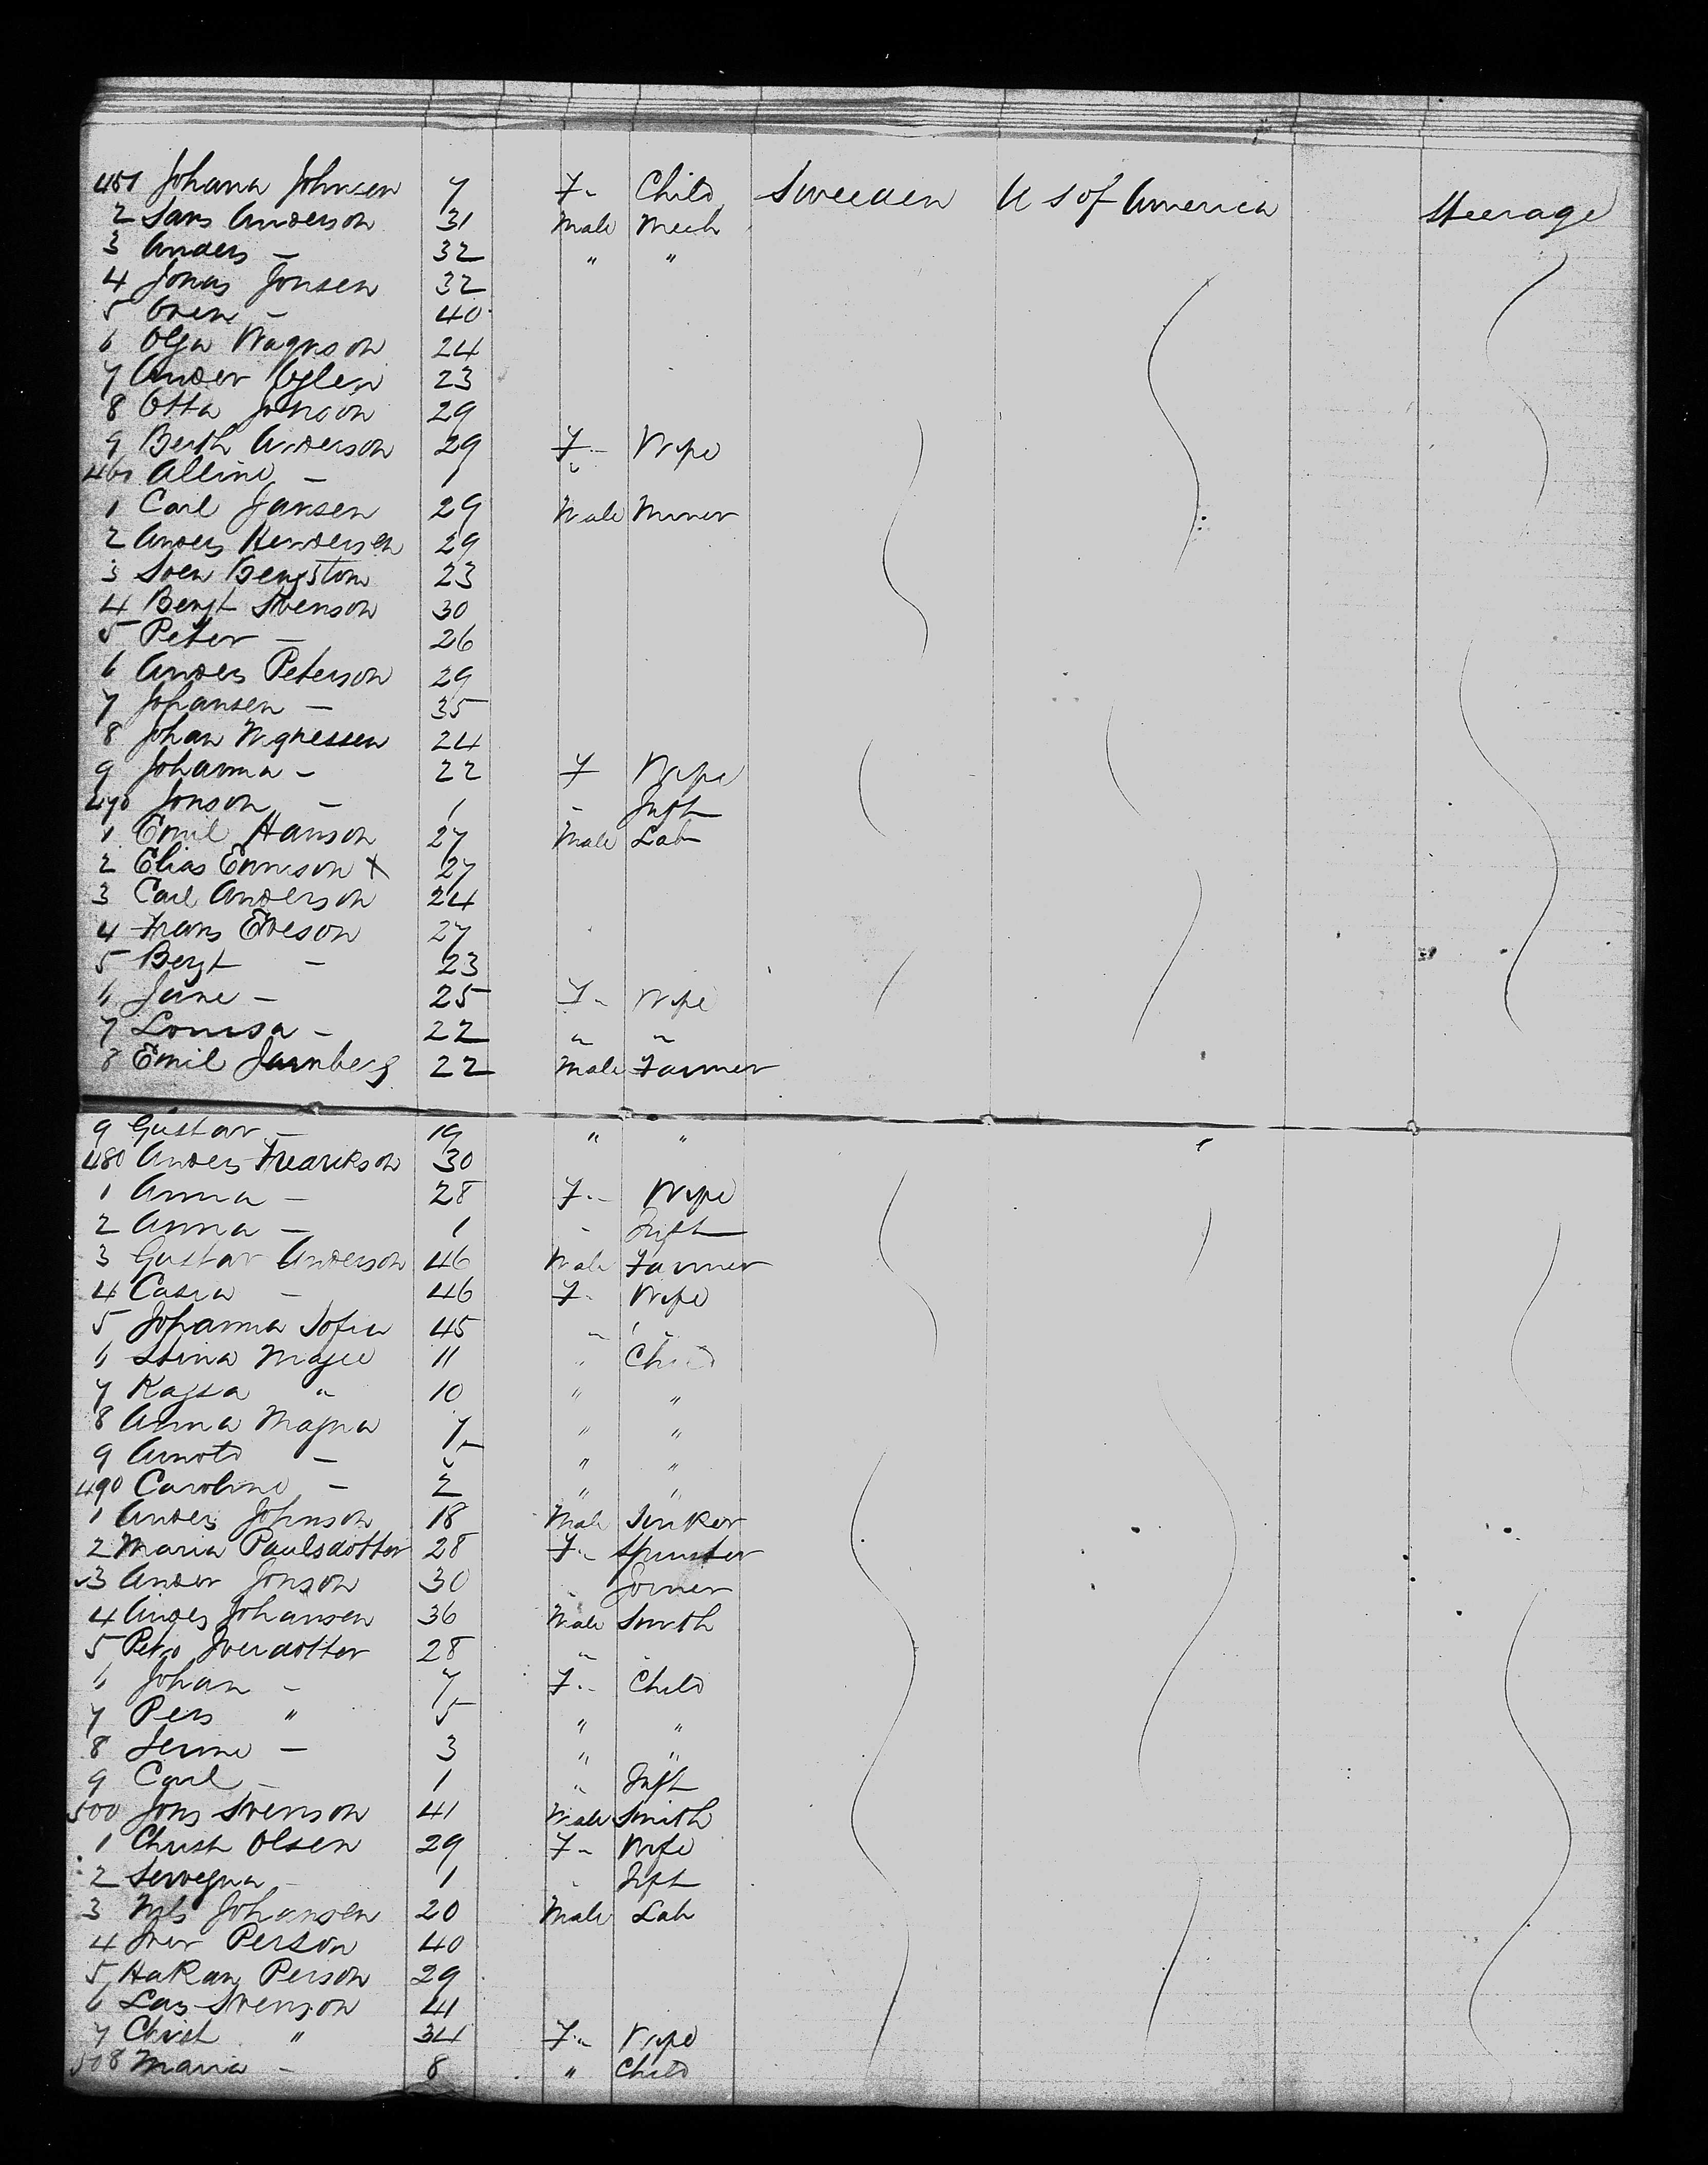 451 Johana Johnsen 7 F " Child Sweeden U S of America Steerage
2 Lars Anderson 31 Male Mech
3 Anders – 32 " "
4 Jonas Jonsen 32
5 Oven – 40
6 Olja Magnson 24
7 Ander 23
8 Otta Johnson 29
9 Berth Anderson 29 F " Wife
460 Alline – 1 "
1 Carl Jansen 29 Male Miner
2 Anders Henderson 29
3 Sven Bengstom 23
4 Bengt Svenson 30
5 Peter – 26
6 Anders Peterson 29
7 Johansen – 35
8 Johan Magnessen 24
9 Johanna – 22 F Wife
470 Jonson – 1 " Inft
1 Emil Hanson 27 Male Lab
2 Elias Ennison X 27
3 Carl Anderson 24
4 Frans Eveson 27
5 Bengt – 23
6 Jane – 25 F " Wife
7 Lovisa – 22 " "
8 Emil Jarnberg 22 Male Farmer
9 Gustav – 19 " "
480 Anders Fredrikson 30
1 Anna – 28 F " Wife
2 Anna – 1 " Inft
3 Gustav Anderson 46 Male Farmer
4 Casia – 46 F " Wife
5 Johanna Sofia 45 " "
6 Stina Majee 11 " Child
7 Kajsa " 10 " "
8 Anna Majna 7 " "
9 Arnold – 5 " "
490 Caroline – 2 " "
1 Anders Johnson 18 Male Sinker
2 Maria Paulsdotter 28 F " Spinster
3 Ander Jonson 30 " Joiner
4 Anders Johansen 36 Male Smith
5 Iverdotter 28 " "
6 Johan – 7 F " Child
7 Pers " 5 " "
8 – 3 " "
9 Carl – 1 " Inft
500 Jons Svenson 41 Male Smith
1 Christ Olsen 29 F " Wife
2 – 1 " Inft
3 Nils Johansen 20 Male Lab
4 Iver Person 40
5 Hakan Person 29
6 Lars Svenson 41
7 Christ " 34 F " Wife
508 Maria – 8 " Child